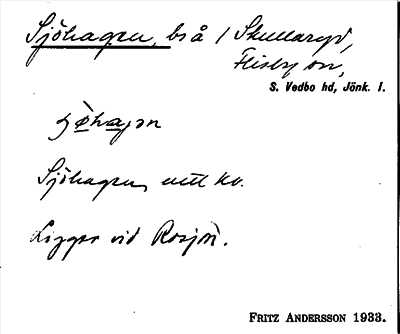 Sjöhagen, bs å / Skullaryd,
Flisby sn,
S. Vedbo hd, Jönk. l.
Sjöhagen, ett kv.
Ligger vid Rosjön.
FRITZ ANDERSSON 1933.